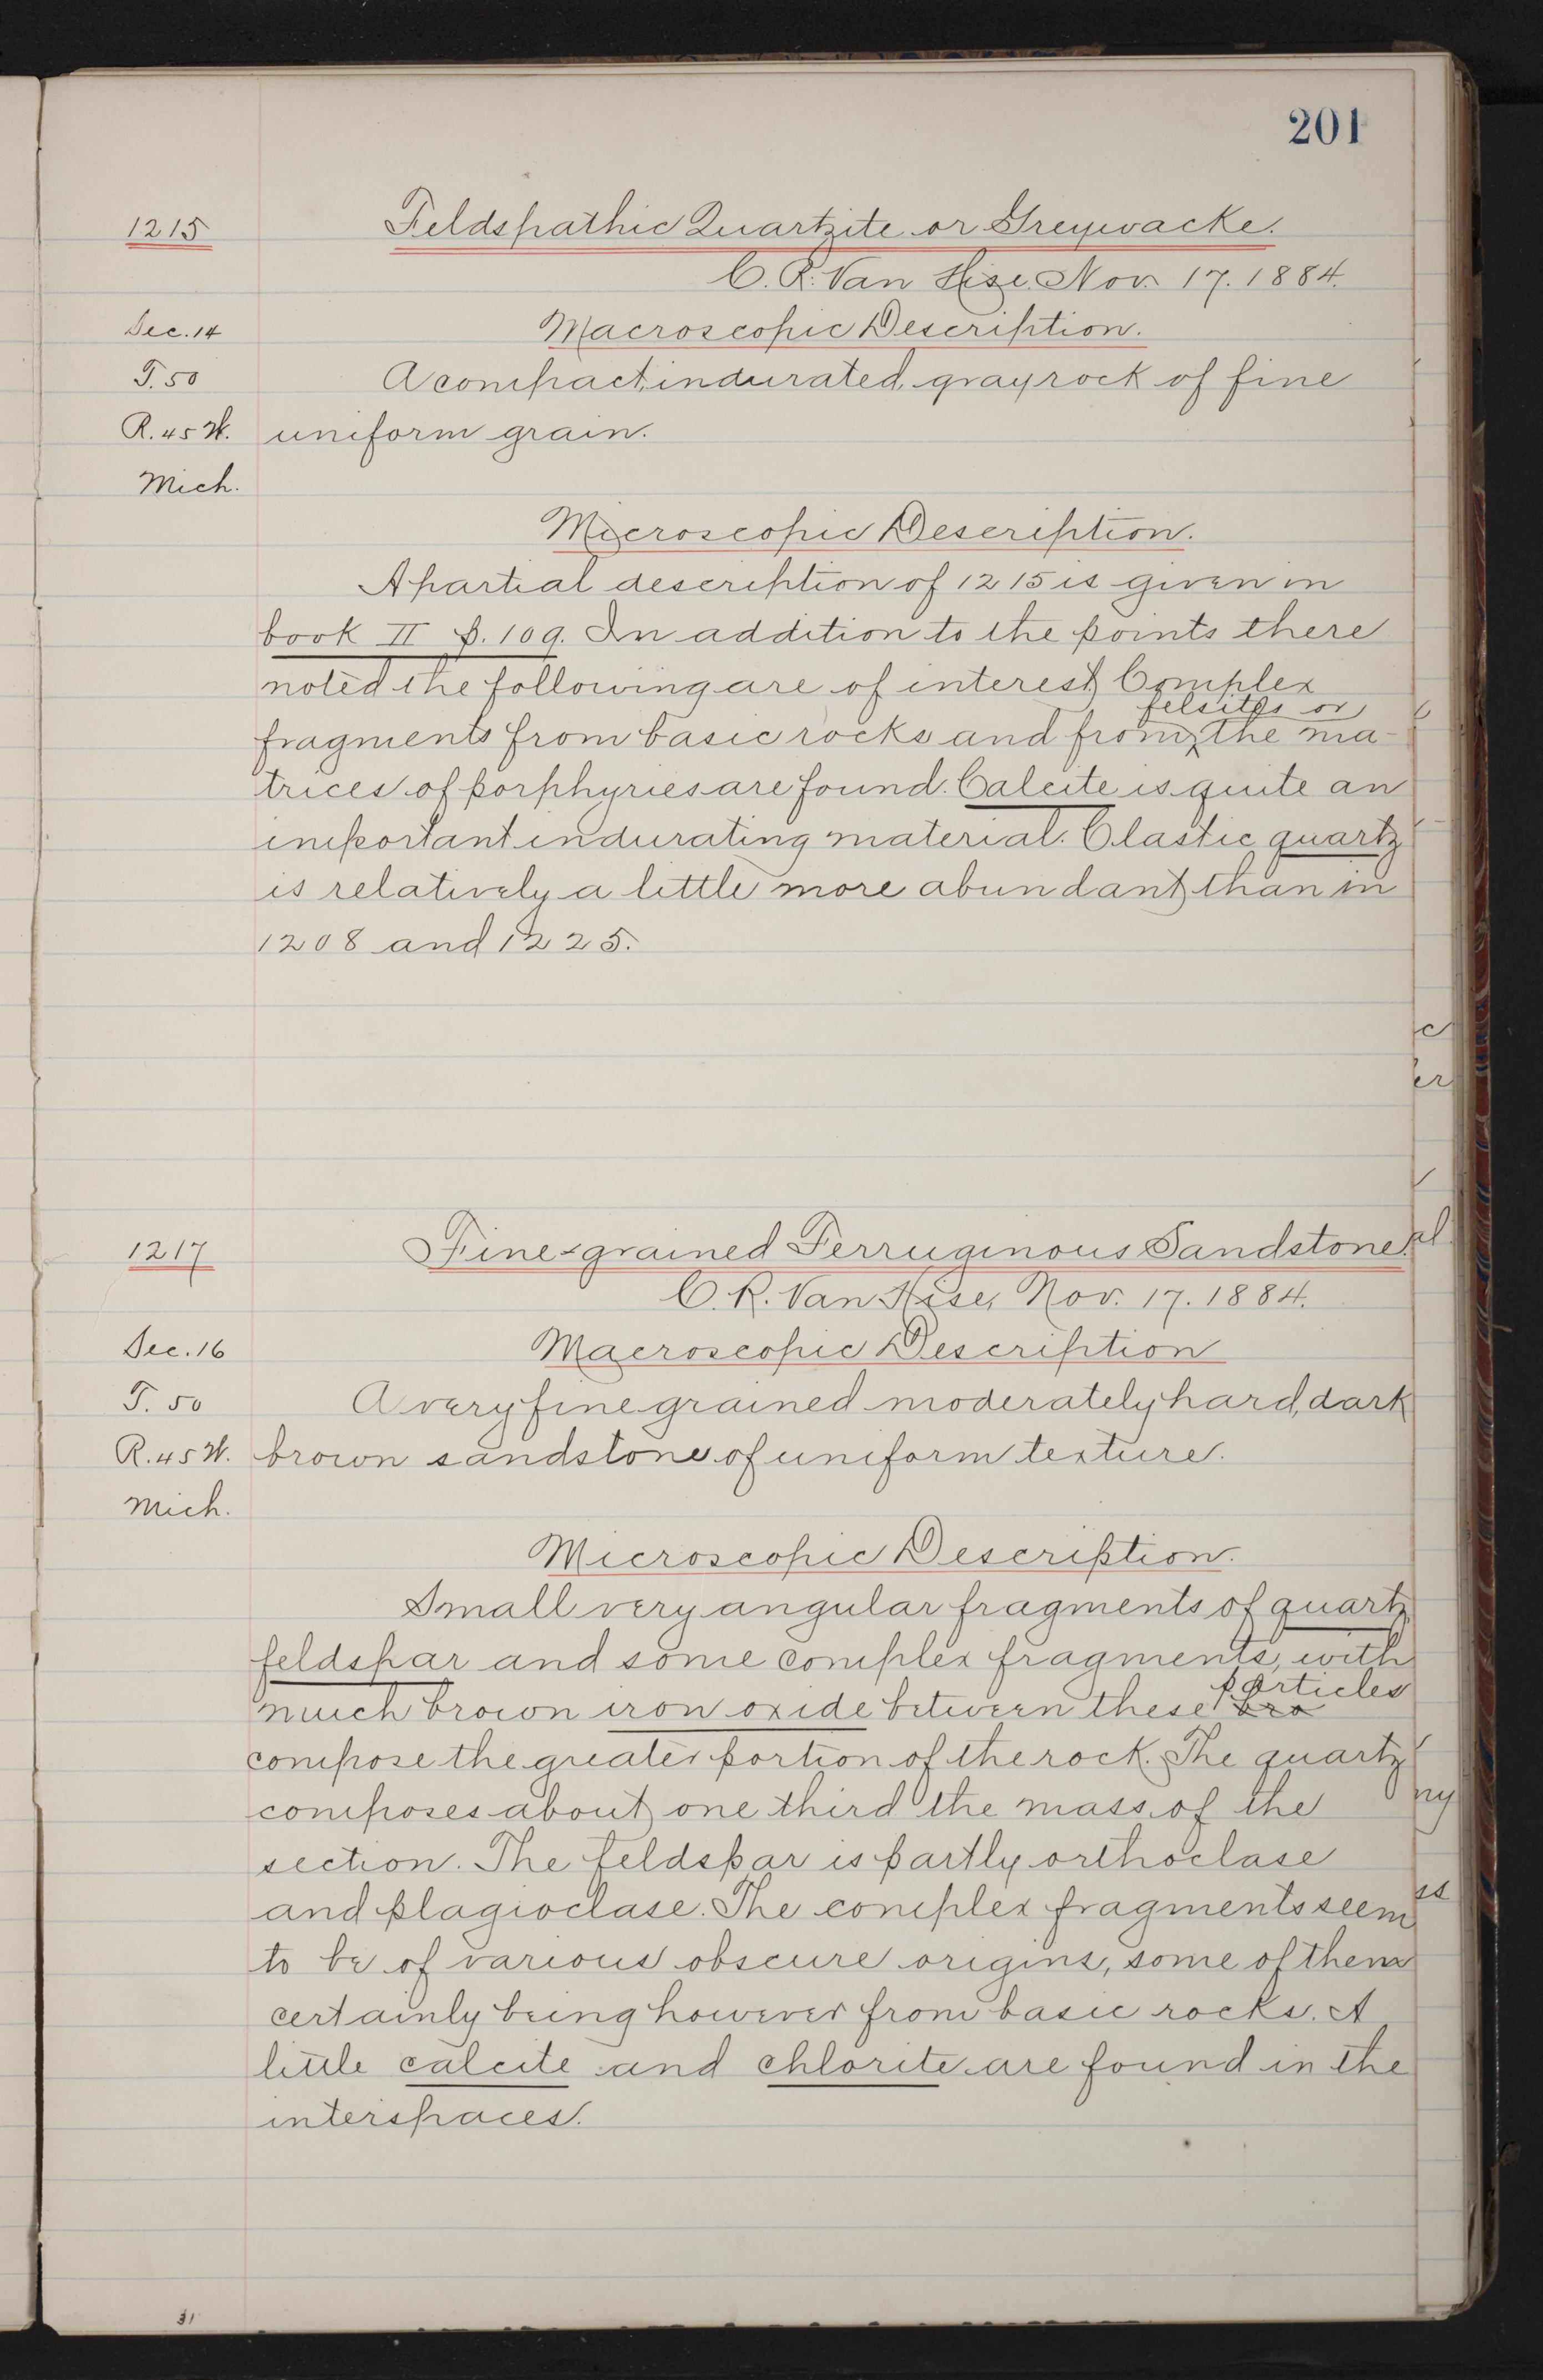 201
1215
Feldspathic Quartzite or Greywacke.
C. R. Van Hise, Nov. 17. 1884.
Sec. 14
Macroscopic Description.
T. 50
A compact, indurated, gray rock of fine
R. 45 W.
uniform grain.
Mich.
Microscopic Description.
A partial description of 1215 is given in
book II p. 109. In addition to the points there
noted the following are of interest, Complex
felsites or
fragments from basic rocks and from the ma-
trices of porphyries are found. Calcite is quite an
important indurating material. Clastic quartz
is relatively a little more abundant than in
1208 and 1225.
1217
Fine-grained Ferruginous Sandstone.
C. R. Van Hise, Nov. 17. 1884.
Sec. 16
Macroscopic Description
T. 50
A very fine grained moderately hard, dark
R. 45 W.
brown sandstone of uniform texture.
Mich.
Microscopic Description.
Small very angular fragments of quartz,
feldspar and some complex fragments, with
particles
much brown iron oxide between these
compose the greater portion of the rock. The quartz
composes about one third the mass of the
section. The feldspar is partly orthoclase
and plagioclase. The complex fragments seem
to be of various obscure origins, some of them
certainly being however from basic rocks. A
little calcite and chlorite are found in the
interspaces.
31